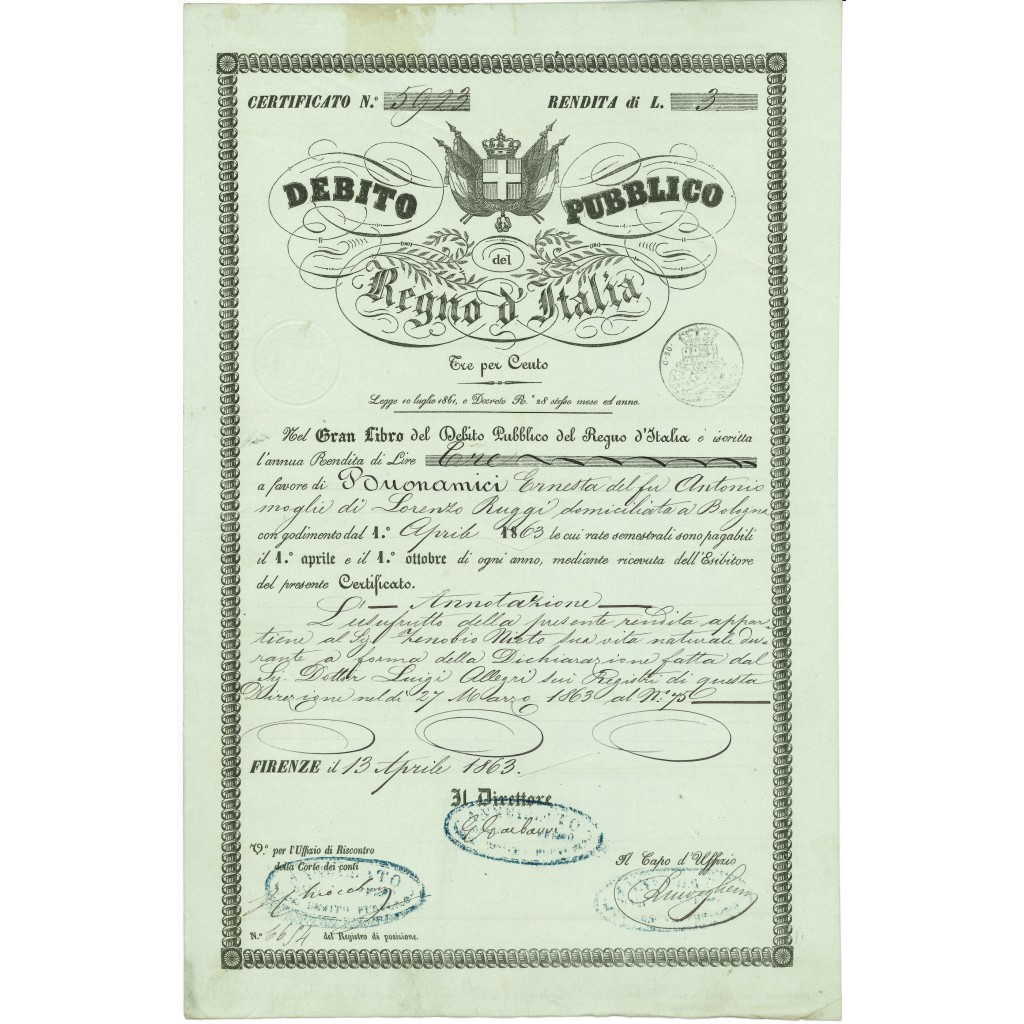 CERTIFICATO N.º 5923 RENDITA di L. 3
DEBITO PUBBLICO
del
Regno d'Italia
Tre per Cento
C. 50
Legge 10 luglio 1861, e Decreto R.º 28 stesso mese ed anno.
Nel Gran Libro del Debito Pubblico del Regno d'Italia è iscritta
l'annua Rendita di Lire Tre
a favore di Buonamici Ernesta del fu Antonio
moglie di Lorenzo Ruggi domiciliata a Bologna
con godimento dal 1.º Aprile 1863 le cui rate semestrali sono pagabili
il 1.º aprile e il 1.º ottobre di ogni anno, mediante ricevuta dell'Esibitore
del presente Certificato.
Annotazione
L'usufrutto della presente rendita appar-
tiene al Sig. Zenobio Nieto sua vita naturale du-
rante a forma della Dichiarazione fatta dal
Sig. Dottor Luigi Allegri sui Registri di questa
Direzione nel dì 27 Marzo 1863 al N.º 75
FIRENZE il 13 Aprile 1863.
Il Direttore
V.º per l'Uffizio di Riscontro
della Corte dei conti
Il Capo d'Uffizio
N.º 6654 del Registro di posizione.